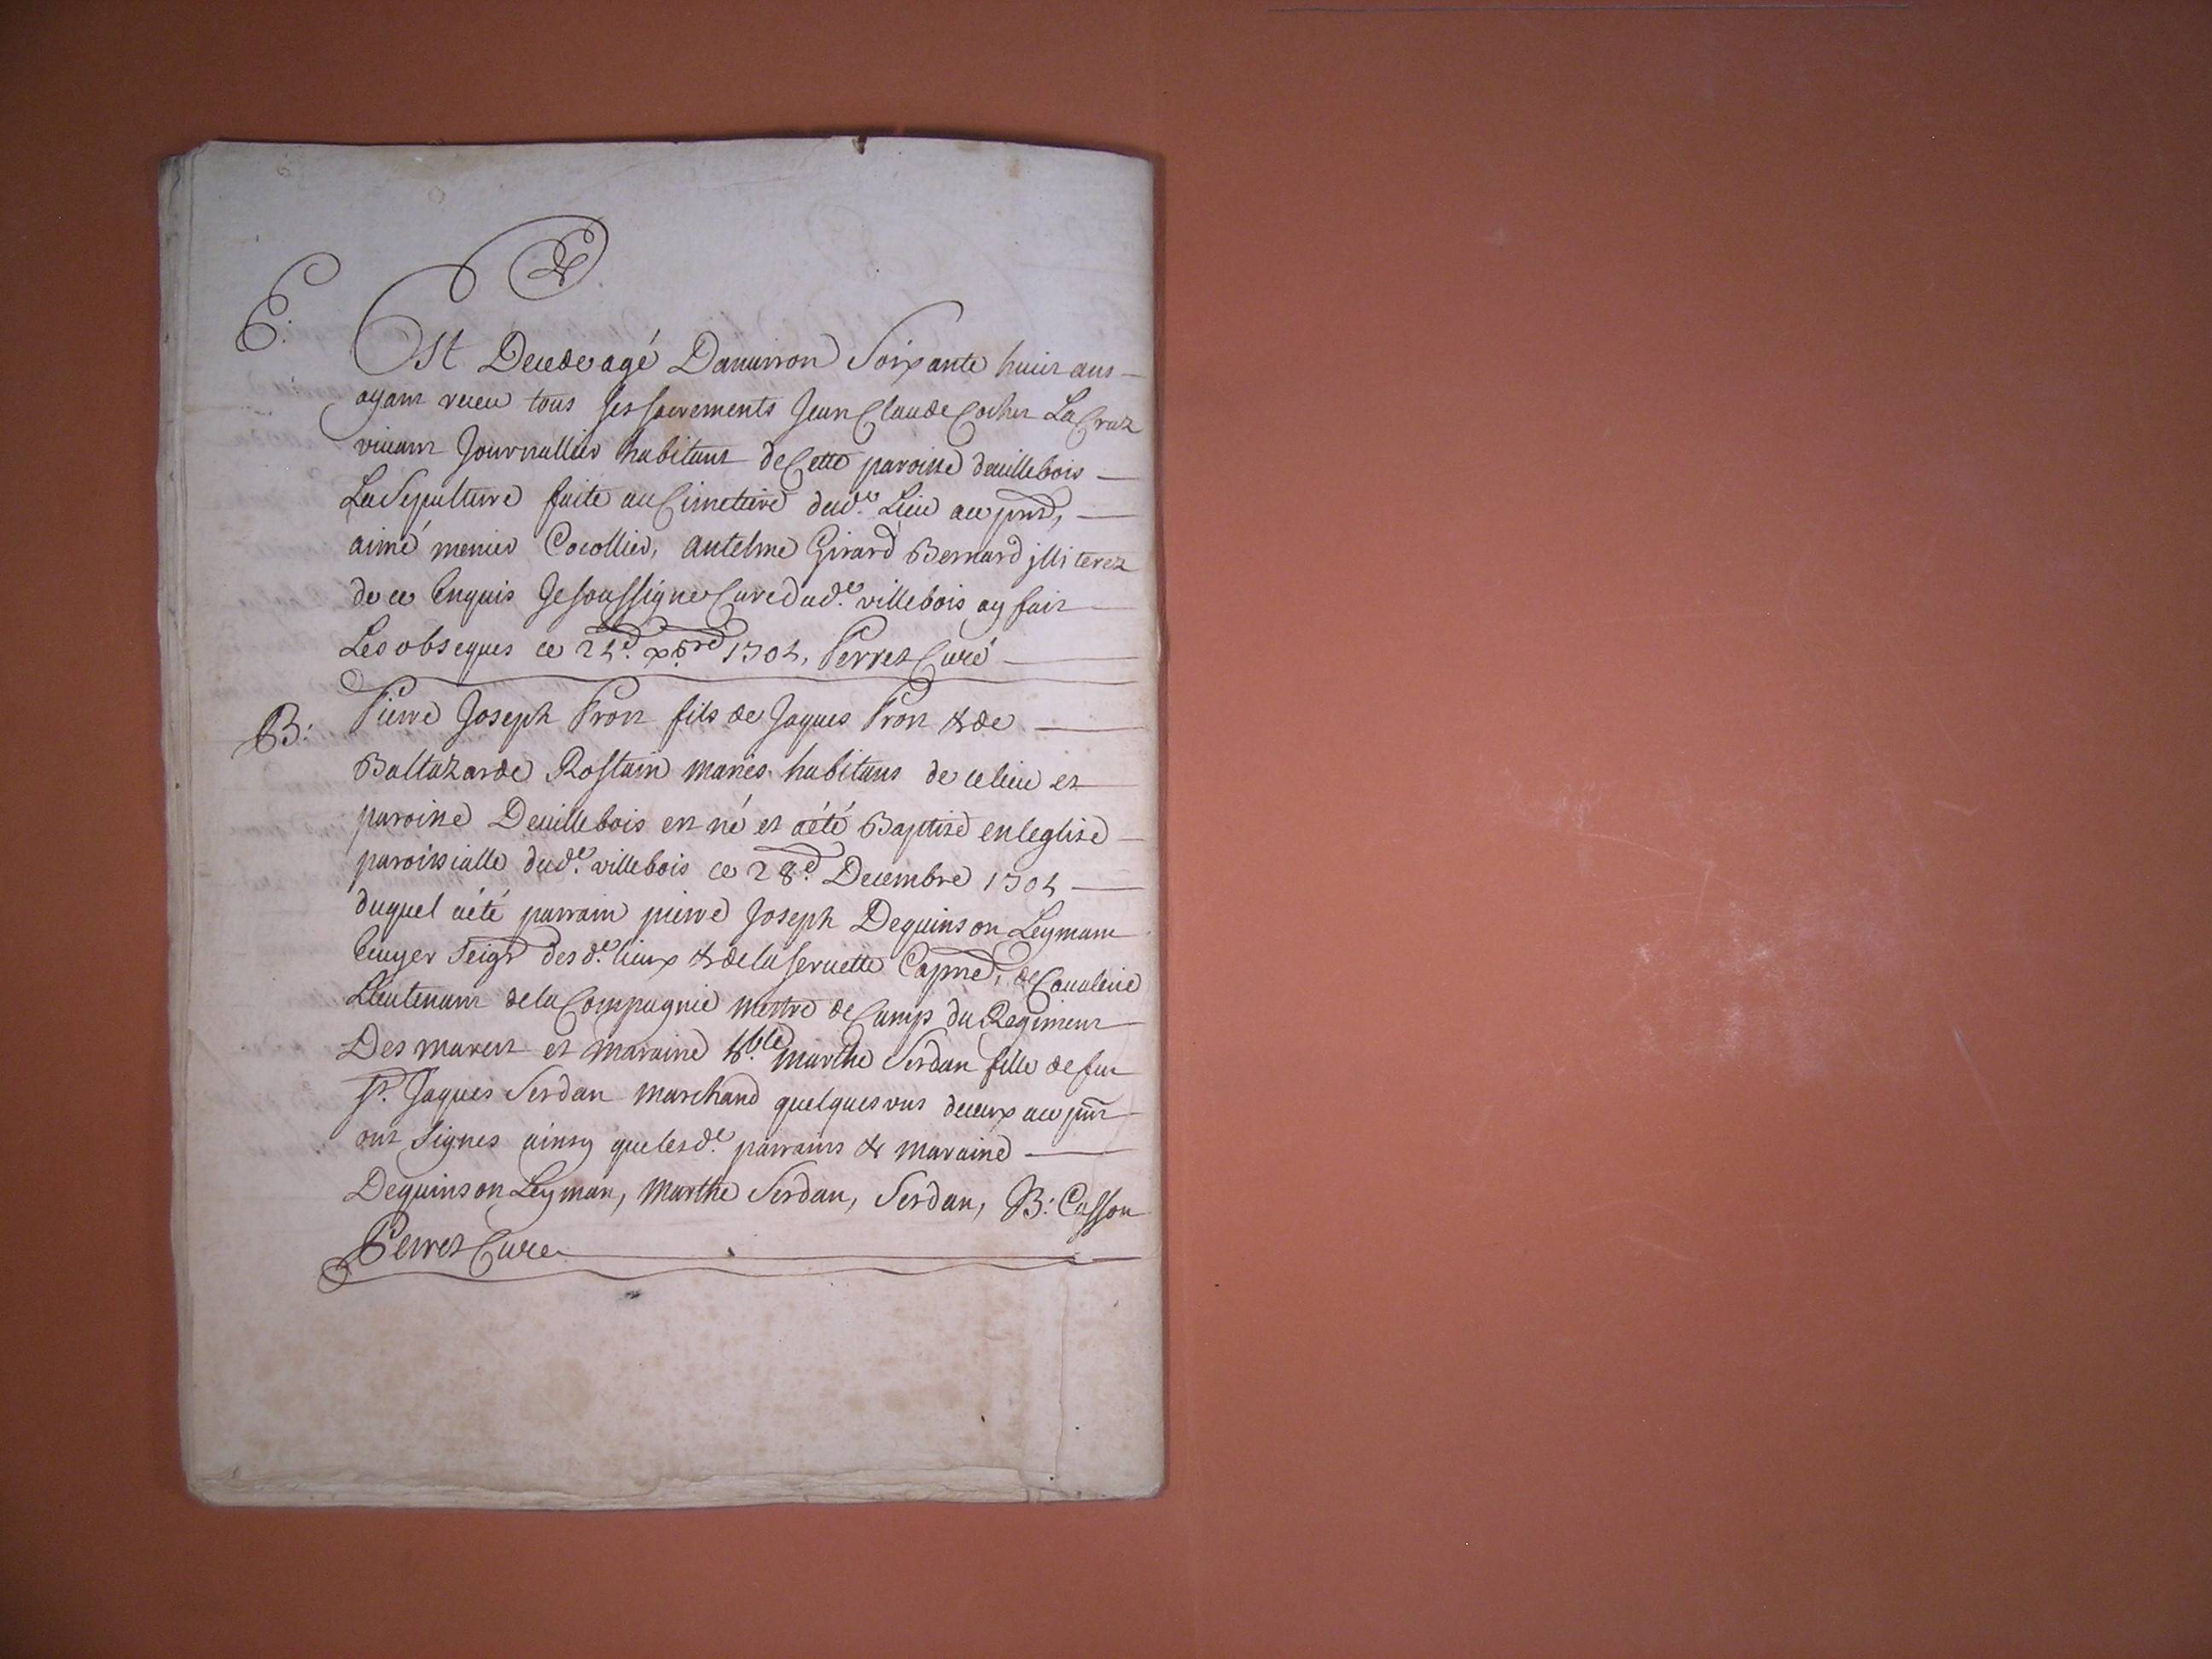 &
E: Est Decede agé Danuiron Soixante huit ans
ayant receu tous ses sacrements Jean Claude Cocher La Cruz
viuant Journallier habitant de Cette paroisse deuillebois
La Sepulture faite au Cimetiere dud.e Lieu au pnd,
aimé menier Cocollier, antelme Girard Bernard illiterez
de ce Enquis Je soussigné Curé dud.e villebois ay fait
Les obseques ce 24.e xbre 1704, Perret Curé
B: Pierre Joseph Pron fils de Jaques Pron & de
Baltazarde Rostain mariés habitans de ce lieu et
paroisse Deuillebois est né et aété Baptisé en leglise
paroissialle dud.e villebois ce 28.e Decembre 1704
duquel aété parrain pierre Joseph Dequinson Leyman
Ecuyer Seigr des d.e lieux & de la seruette Capne, de Caualerie
Lieutenant de la Compagnie mestre de Camp du Regiment
Des marest et maraine marthe Serdan fille de feu
sr. Jaques Serdan marchand quelques vns deceux au pnt
ont signes ainsy que lesd.e parrains & maraine
Dequinson Leyman, Marthe Serdan, Serdan, B: Casson
Perret Curé